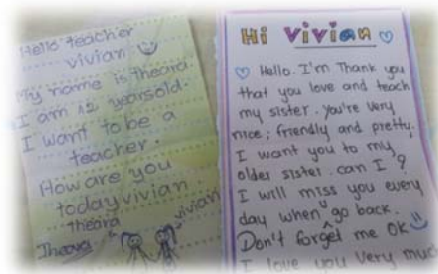 Hello teacher
vivian
My name is theara
I am 12 years old.
I want to be a
teacher.
How are you
today vivian.
theara
vivian
Theara
Hi Vivian
Hello. I'm Thank you
that you love and teach
my sister. you're very
nice, friendly and pretty.
I want you to my
older sister. can I?
I will miss you every
day when go back.
Don't forget me OK
I love you very much